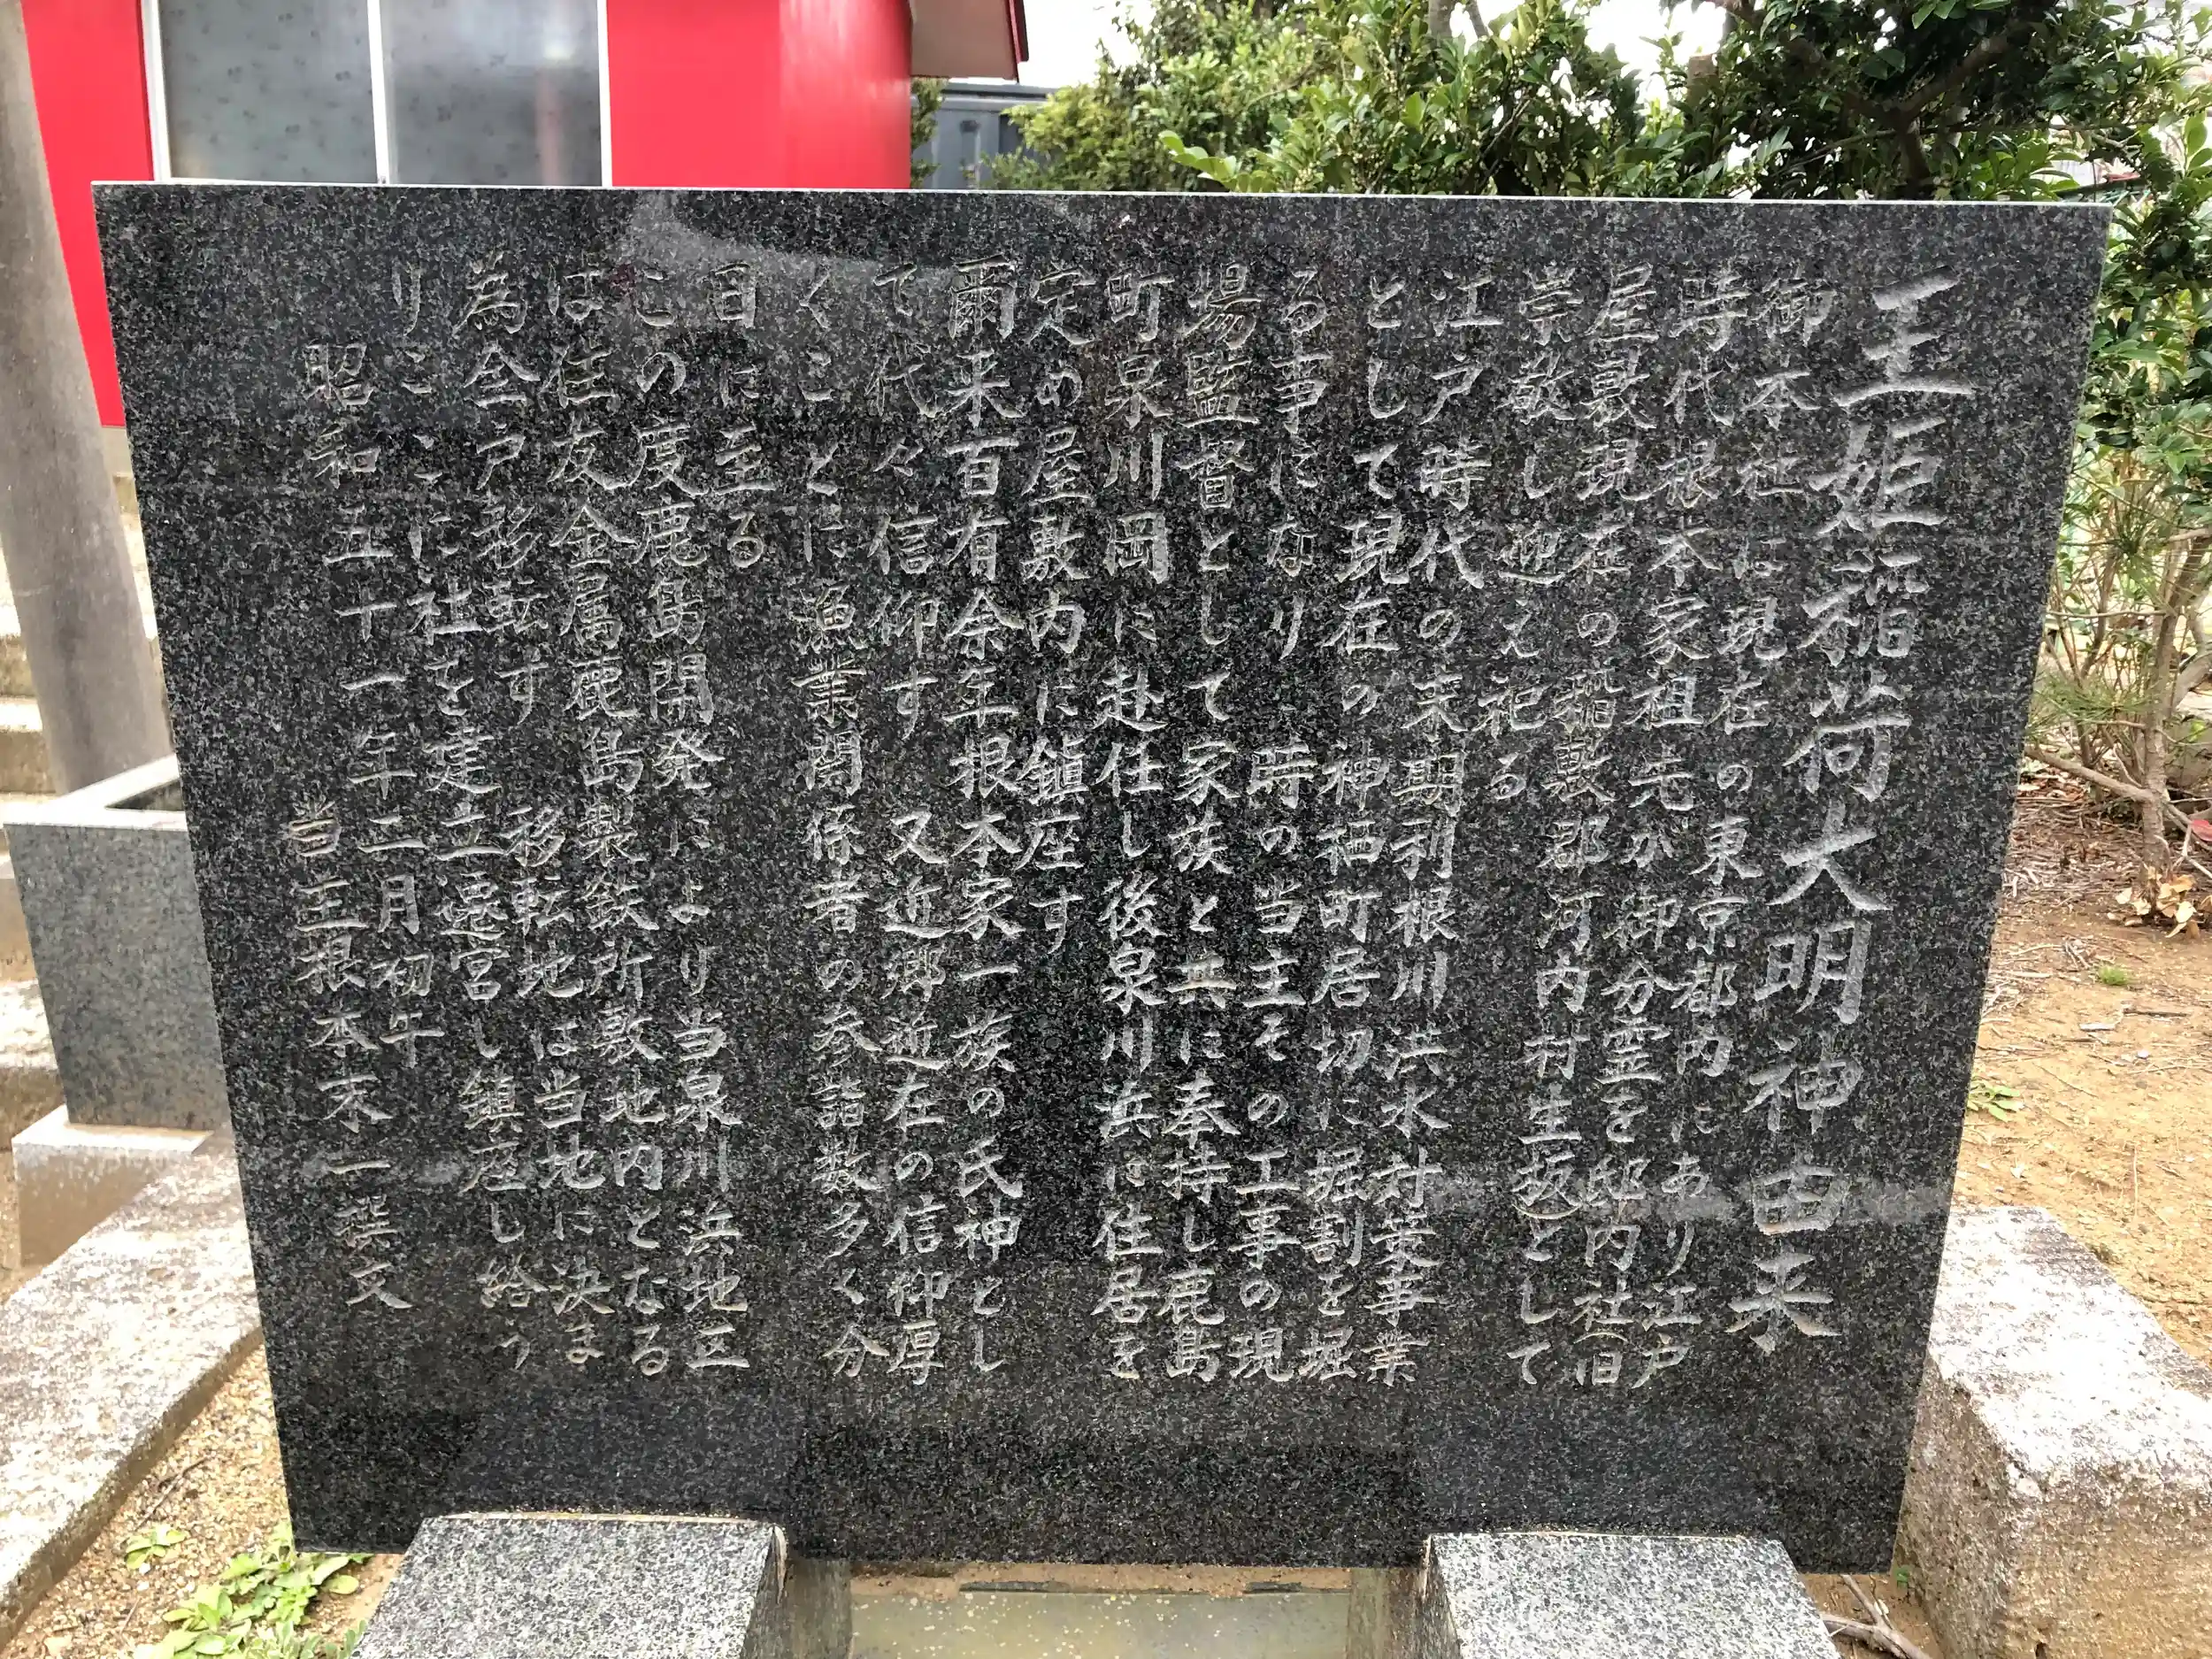 王姫稲荷大明神由来
御本社は現在の東京都内にあり江戸
時代根本家祖先が御分霊を邸内社(旧
屋敷現在の稲敷郡河内村生坂)として
崇敬し迎え祀る
江戸時代の末期利根川洪水対策事業
として現在の神栖町居切に堀割を堀
る事になり 時の当主その工事の現
場監督として家族と共に奉持し鹿島
町泉川岡に赴任し後泉川浜に住居を
定め屋敷内に鎮座す
爾来百有余年根本家一族の氏神とし
て代々信仰す 又近郷近在の信仰厚
くことに漁業関係者の参詣数多く今
日に至る
この度鹿島開発により当泉川浜地区
は住友金属鹿島製鉄所敷地内となる
為全戸移転す 移転地は当地に決ま
りここに社を建立遷宮し鎮座し給う
昭和五十一年二月初午
当主根本末一撰文